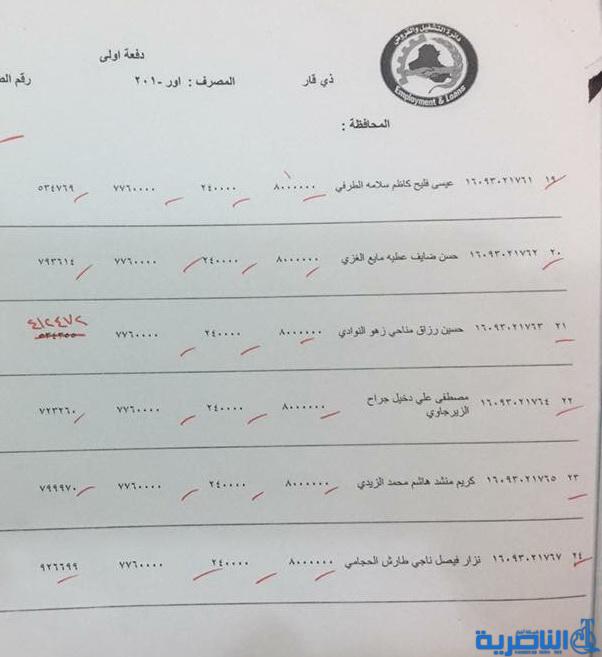 دائرة التشغيل والقروض
Employment & Loans
دفعة اولى
ذي قار المصرف : اور -٢٠١ رقم الص
المحافظة :
١٩ ١٦٠٩٣٠٢١٧٦١ عيسى فليح كاظم سلامه الطرفي ٨٠٠٠٠٠٠ ٢٤٠٠٠٠ ٧٧٦٠٠٠٠ ٥٣٤٧٦٩
٢٠ ١٦٠٩٣٠٢١٧٦٢ حسن ضايف عطيه مايع الغزي ٨٠٠٠٠٠٠ ٢٤٠٠٠٠ ٧٧٦٠٠٠٠ ٧٩٣٦١٤
٤١٢٤٧٢
٢١ ١٦٠٩٣٠٢١٧٦٣ حسين رزاق مناحي زهو النوادي ٨٠٠٠٠٠٠ ٢٤٠٠٠٠ ٧٧٦٠٠٠٠ ٥٣٤٣٥٥
٢٢ ١٦٠٩٣٠٢١٧٦٤ مصطفى علي دخيل جراح ٨٠٠٠٠٠٠ ٢٤٠٠٠٠ ٧٧٦٠٠٠٠ ٧٢٣٢٦٠
الزيرجاوي
٢٣ ١٦٠٩٣٠٢١٧٦٥ كريم منشد هاشم محمد الزيدي ٨٠٠٠٠٠٠ ٢٤٠٠٠٠ ٧٧٦٠٠٠٠ ٧٩٩٩٧٠
٢٤ ١٦٠٩٣٠٢١٧٦٧ نزار فيصل ناجي طارش الحجامي ٨٠٠٠٠٠٠ ٢٤٠٠٠٠ ٧٧٦٠٠٠٠ ٩٢٦٦٩٩
الناصرية